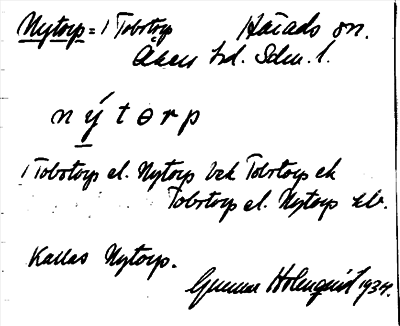 Nytorp = 1 Tobstorp Härads sn.
Åkers hd. Sdm. l.
n ý t ɵ r p
1 Tobstorp el. Nytorp bek Tobstorp ek
Tobstorp el. Nytorp kb.
Kallas Nytorp.
Gunnar Holmquist 1934.